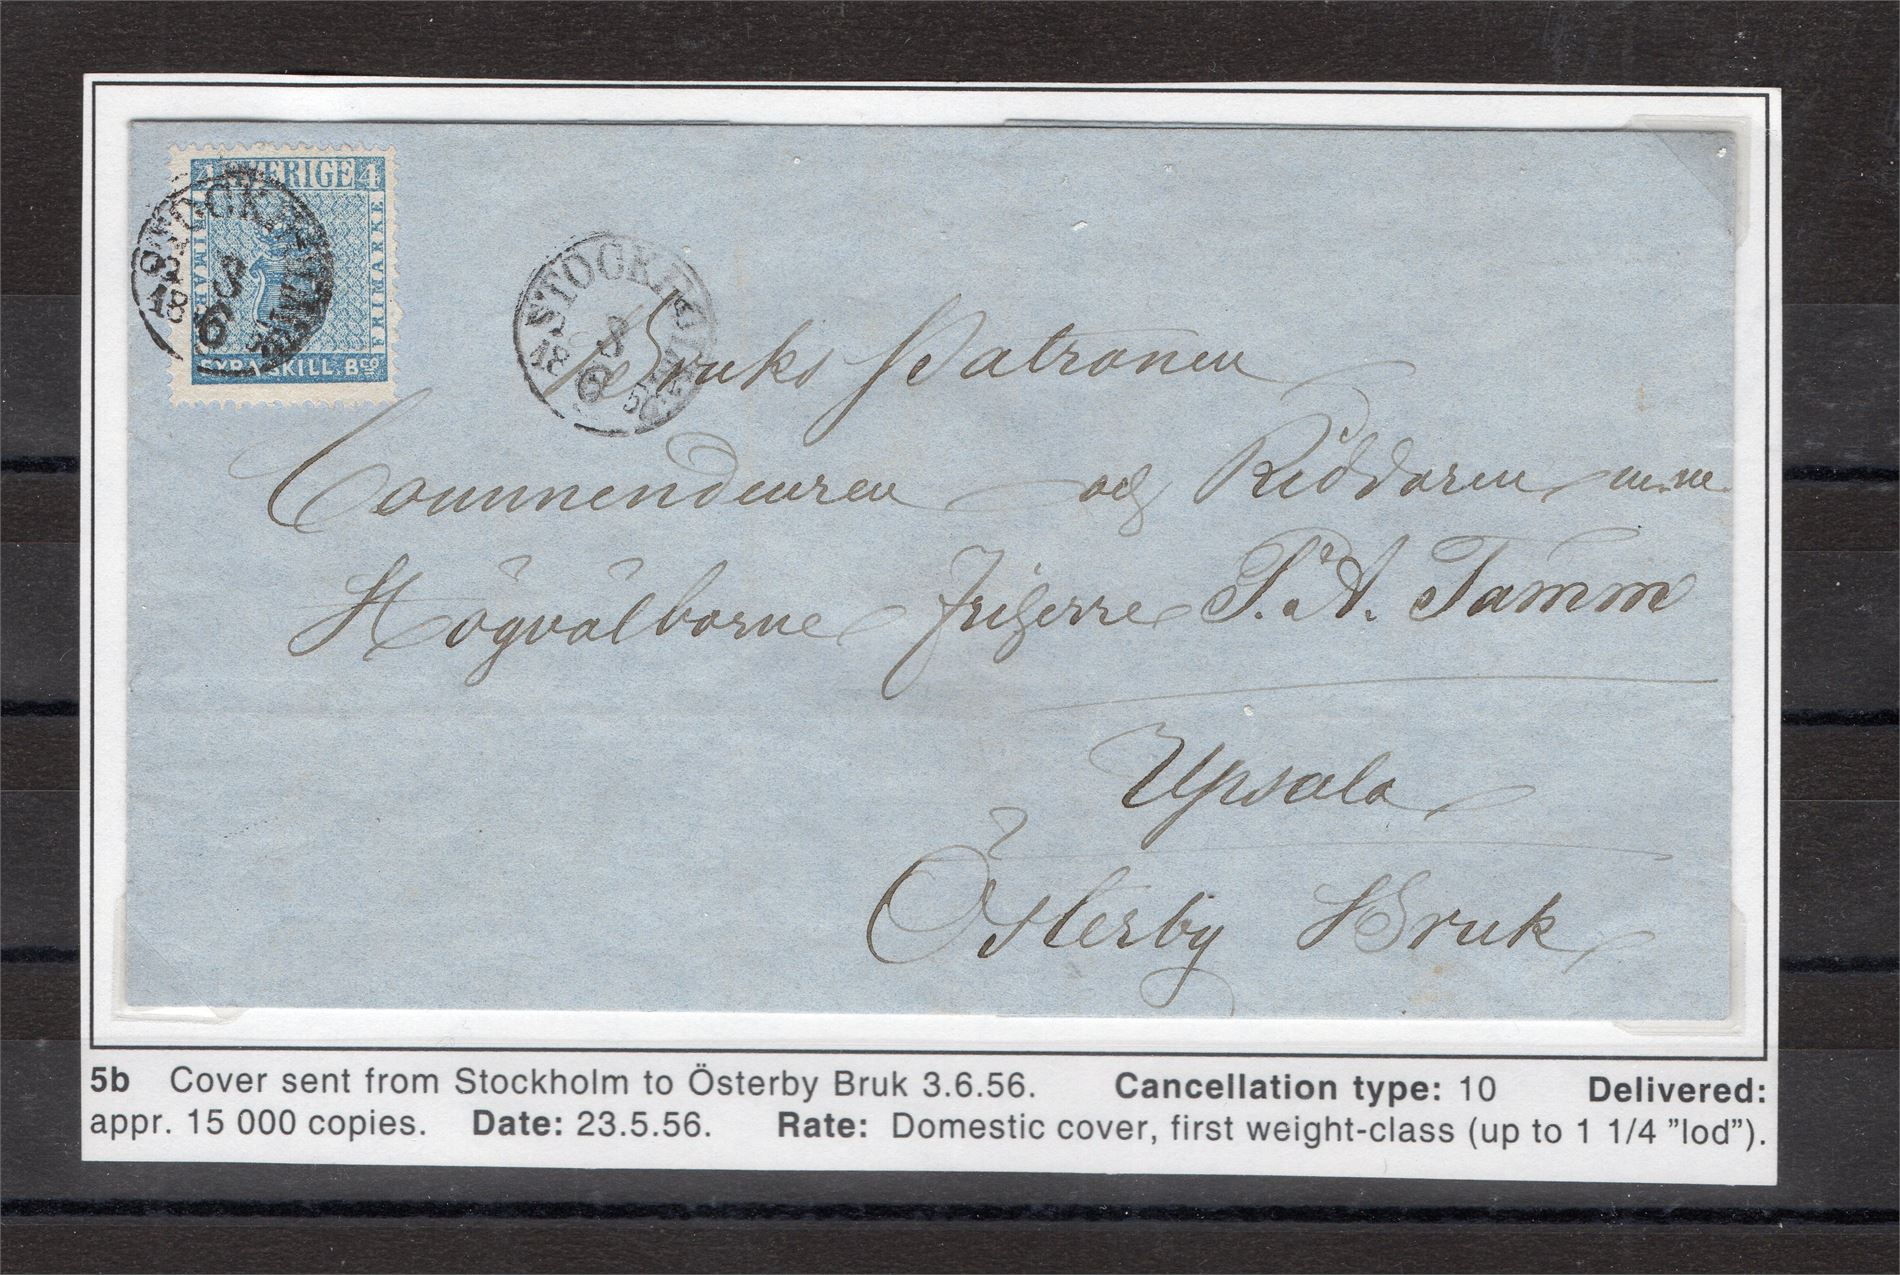 4 SVERIGE 4
FRIMÄRKE
FYRA SKILL. Bco
STOCKHOLM
3
6
STOCKHOLM
3
6
Bruks Patronen
Commendeuren och Riddaren m.m.
Högvälborne Friherre P. A. Tamm
Upsala
Österby Bruk
5b Cover sent from Stockholm to Österby Bruk 3.6.56. Cancellation type: 10 Delivered:
appr. 15 000 copies. Date: 23.5.56. Rate: Domestic cover, first weight-class (up to 1 1/4 ”lod”).